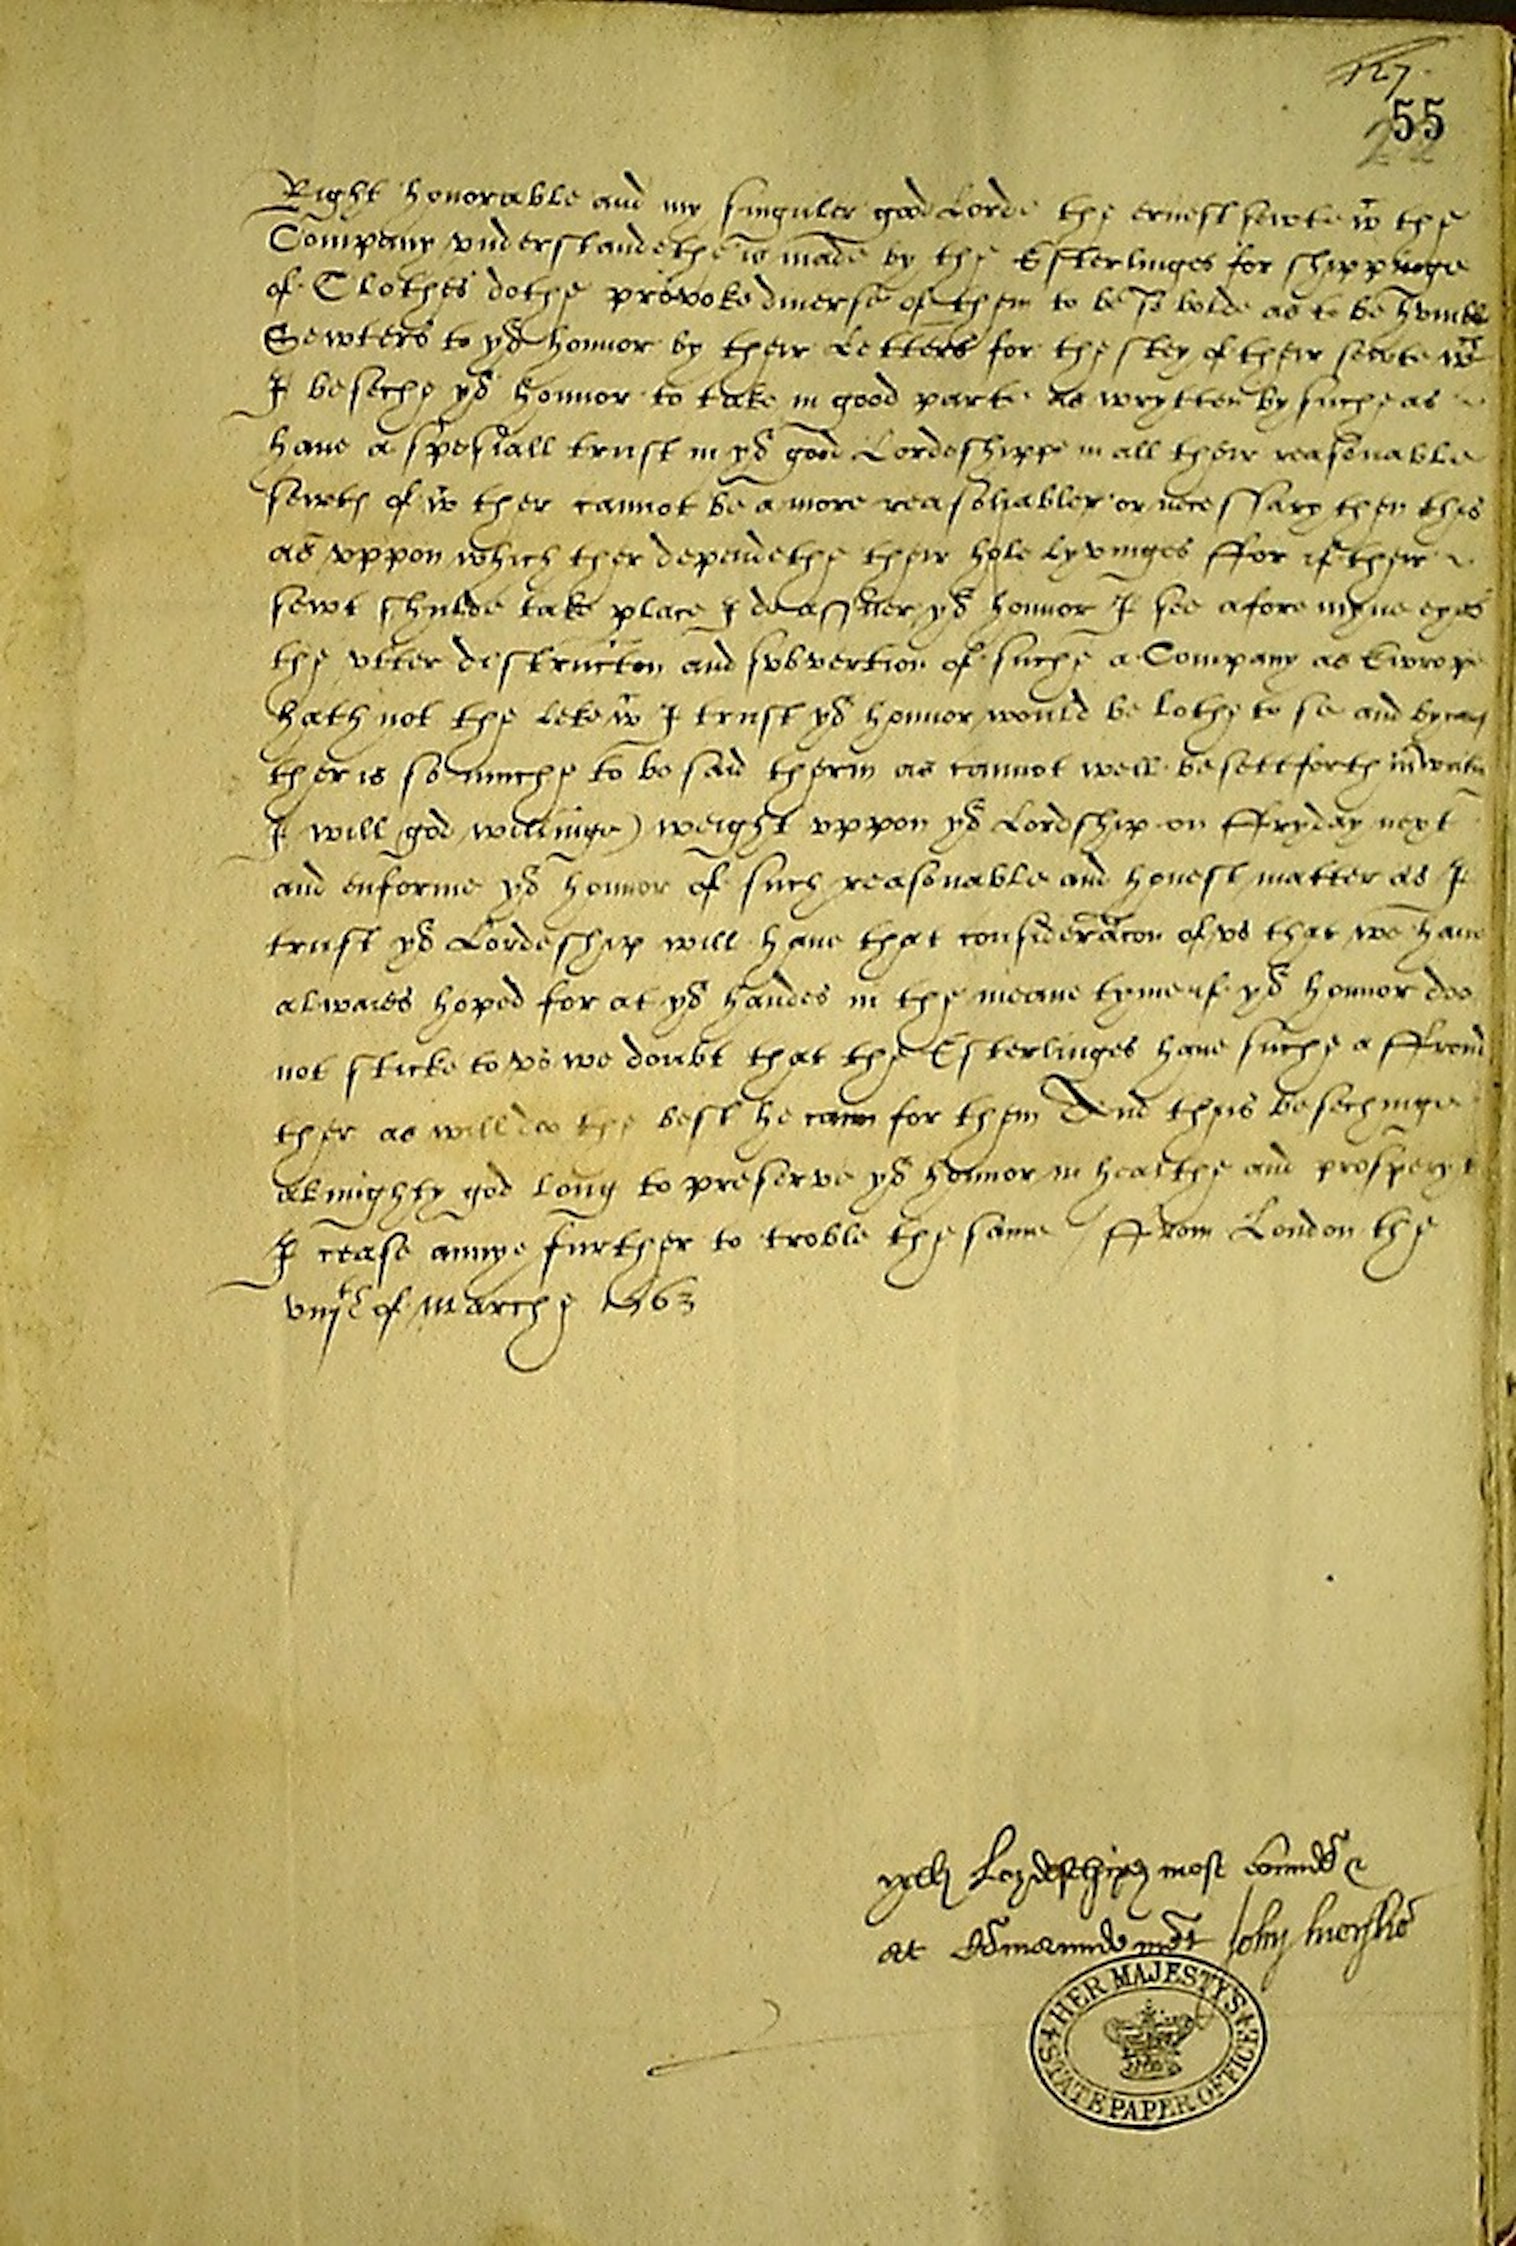 127.
55
22
Right honorable and my singuler good Lorde the ernest sewte wch the
Company vnderstandethe is made by the Esterlinges for shippinge
of Clothes dothe provoke diuerse of them to be so bolde as to be humble
Sewters to yor honnor by their Letters for the stey of their sewte wch
I beseche yor honnor to take in good parte as wrytten by suche as
haue a spesiall trust in yor good Lordeshippe in all their reasonable
sewts of wch ther cannot be a more reasonabler or necessary then this
as vppon which ther dependethe their hole lyvinges ffor if their
sewt shulde take place I do assuer yor honnor I see afore myne eyes
the vtter destructon and subvertion of suche a Company as Ewrope
hath not the leke wch I trust yor honnor would be lothe to se and bycaus
ther is so muche to be said therin as cannot well be sett forth in writin
I will (god willinge) weight vppon yor Lordship on ffryday next
and enforme yor honnor of such reasonable and honest matter as I
trust yor Lordeship will haue that consideracon of vs that we haue
alwaies hoped for at yor handes in the meane tyme if yor honnor doo
not sticke to vs we doubt that the Esterlinges haue suche a ffrend
ther as will doo the best he cann for them And thus besechinge
almighty god long to preserve yor honnor in healthe and prosperyt
I cease annye further to troble the same / ffrom London the
viijth of Marche 1563
Lordeschips most bounde
at Comaundment John
HER MAJESTYS
STATE PAPER OFFICE